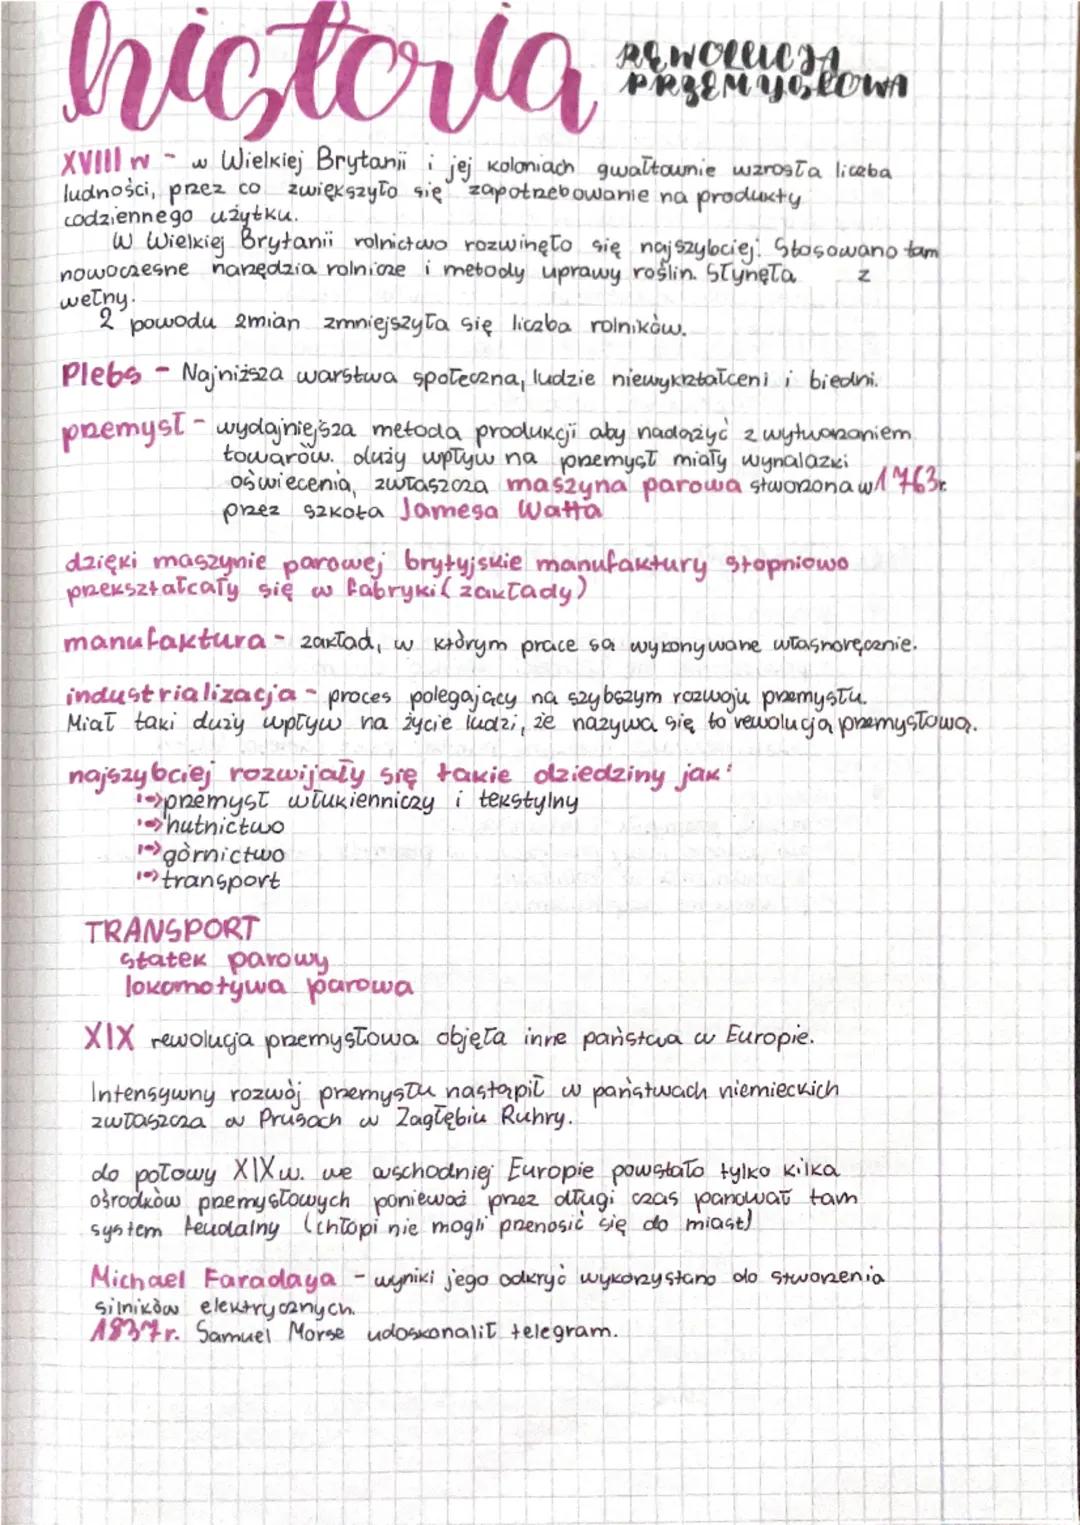 historia
REWOLUCJA
PRZEMYSŁOWA
XVIII w - w Wielkiej Brytanii i jej koloniach gwałtownie wzrosła liczba
ludności, przez co zwiększyło się zapotrzebowanie na produkty
codziennego użytku.
W Wielkiej Brytanii rolnictwo rozwinęło się najszybciej. Stosowano tam
nowoczesne narzędzia rolnicze i metody uprawy roślin. Słynęła z
wełny.
Z powodu zmian zmniejszyła się liczba rolników.
Plebs - Najniższa warstwa społeczna, ludzie niewykształceni i biedni.
przemysł - wydajniejsza metoda produkcji aby nadążyć z wytwarzaniem
towarów. duży wpływ na przemysł miały wynalazki
oświecenia, zwłaszcza maszyna parowa stworzona w 1763r.
przez szkota Jamesa Watta
dzięki maszynie parowej brytyjskie manufaktury stopniowo
przekształcały się w fabryki (zakłady)
manufaktura - zakład, w którym prace są wykonywane własnoręcznie.
industrializacja - proces polegający na szybszym rozwoju przemysłu.
Miał taki duży wpływ na życie ludzi, że nazywa się to rewolucją przemysłową.
najszybciej rozwijały się takie dziedziny jak:
przemysł włukienniczy i tekstylny
hutnictwo
górnictwo
transport
TRANSPORT
statek parowy
lokomotywa parowa
XIX rewolucja przemysłowa objęła inne państwa w Europie.
Intensywny rozwój przemysłu nastąpił w państwach niemieckich
zwłaszcza w Prusach w Zagłębiu Ruhry.
do połowy XIX w. we wschodniej Europie powstało tylko kilka
ośrodków przemysłowych ponieważ przez długi czas panował tam
system feudalny (chłopi nie mogli przenosić się do miast)
Michael Faradaya - wyniki jego odkryć wykorzystano do stworzenia
silników elektrycznych.
1837r. Samuel Morse udoskonalił telegram.